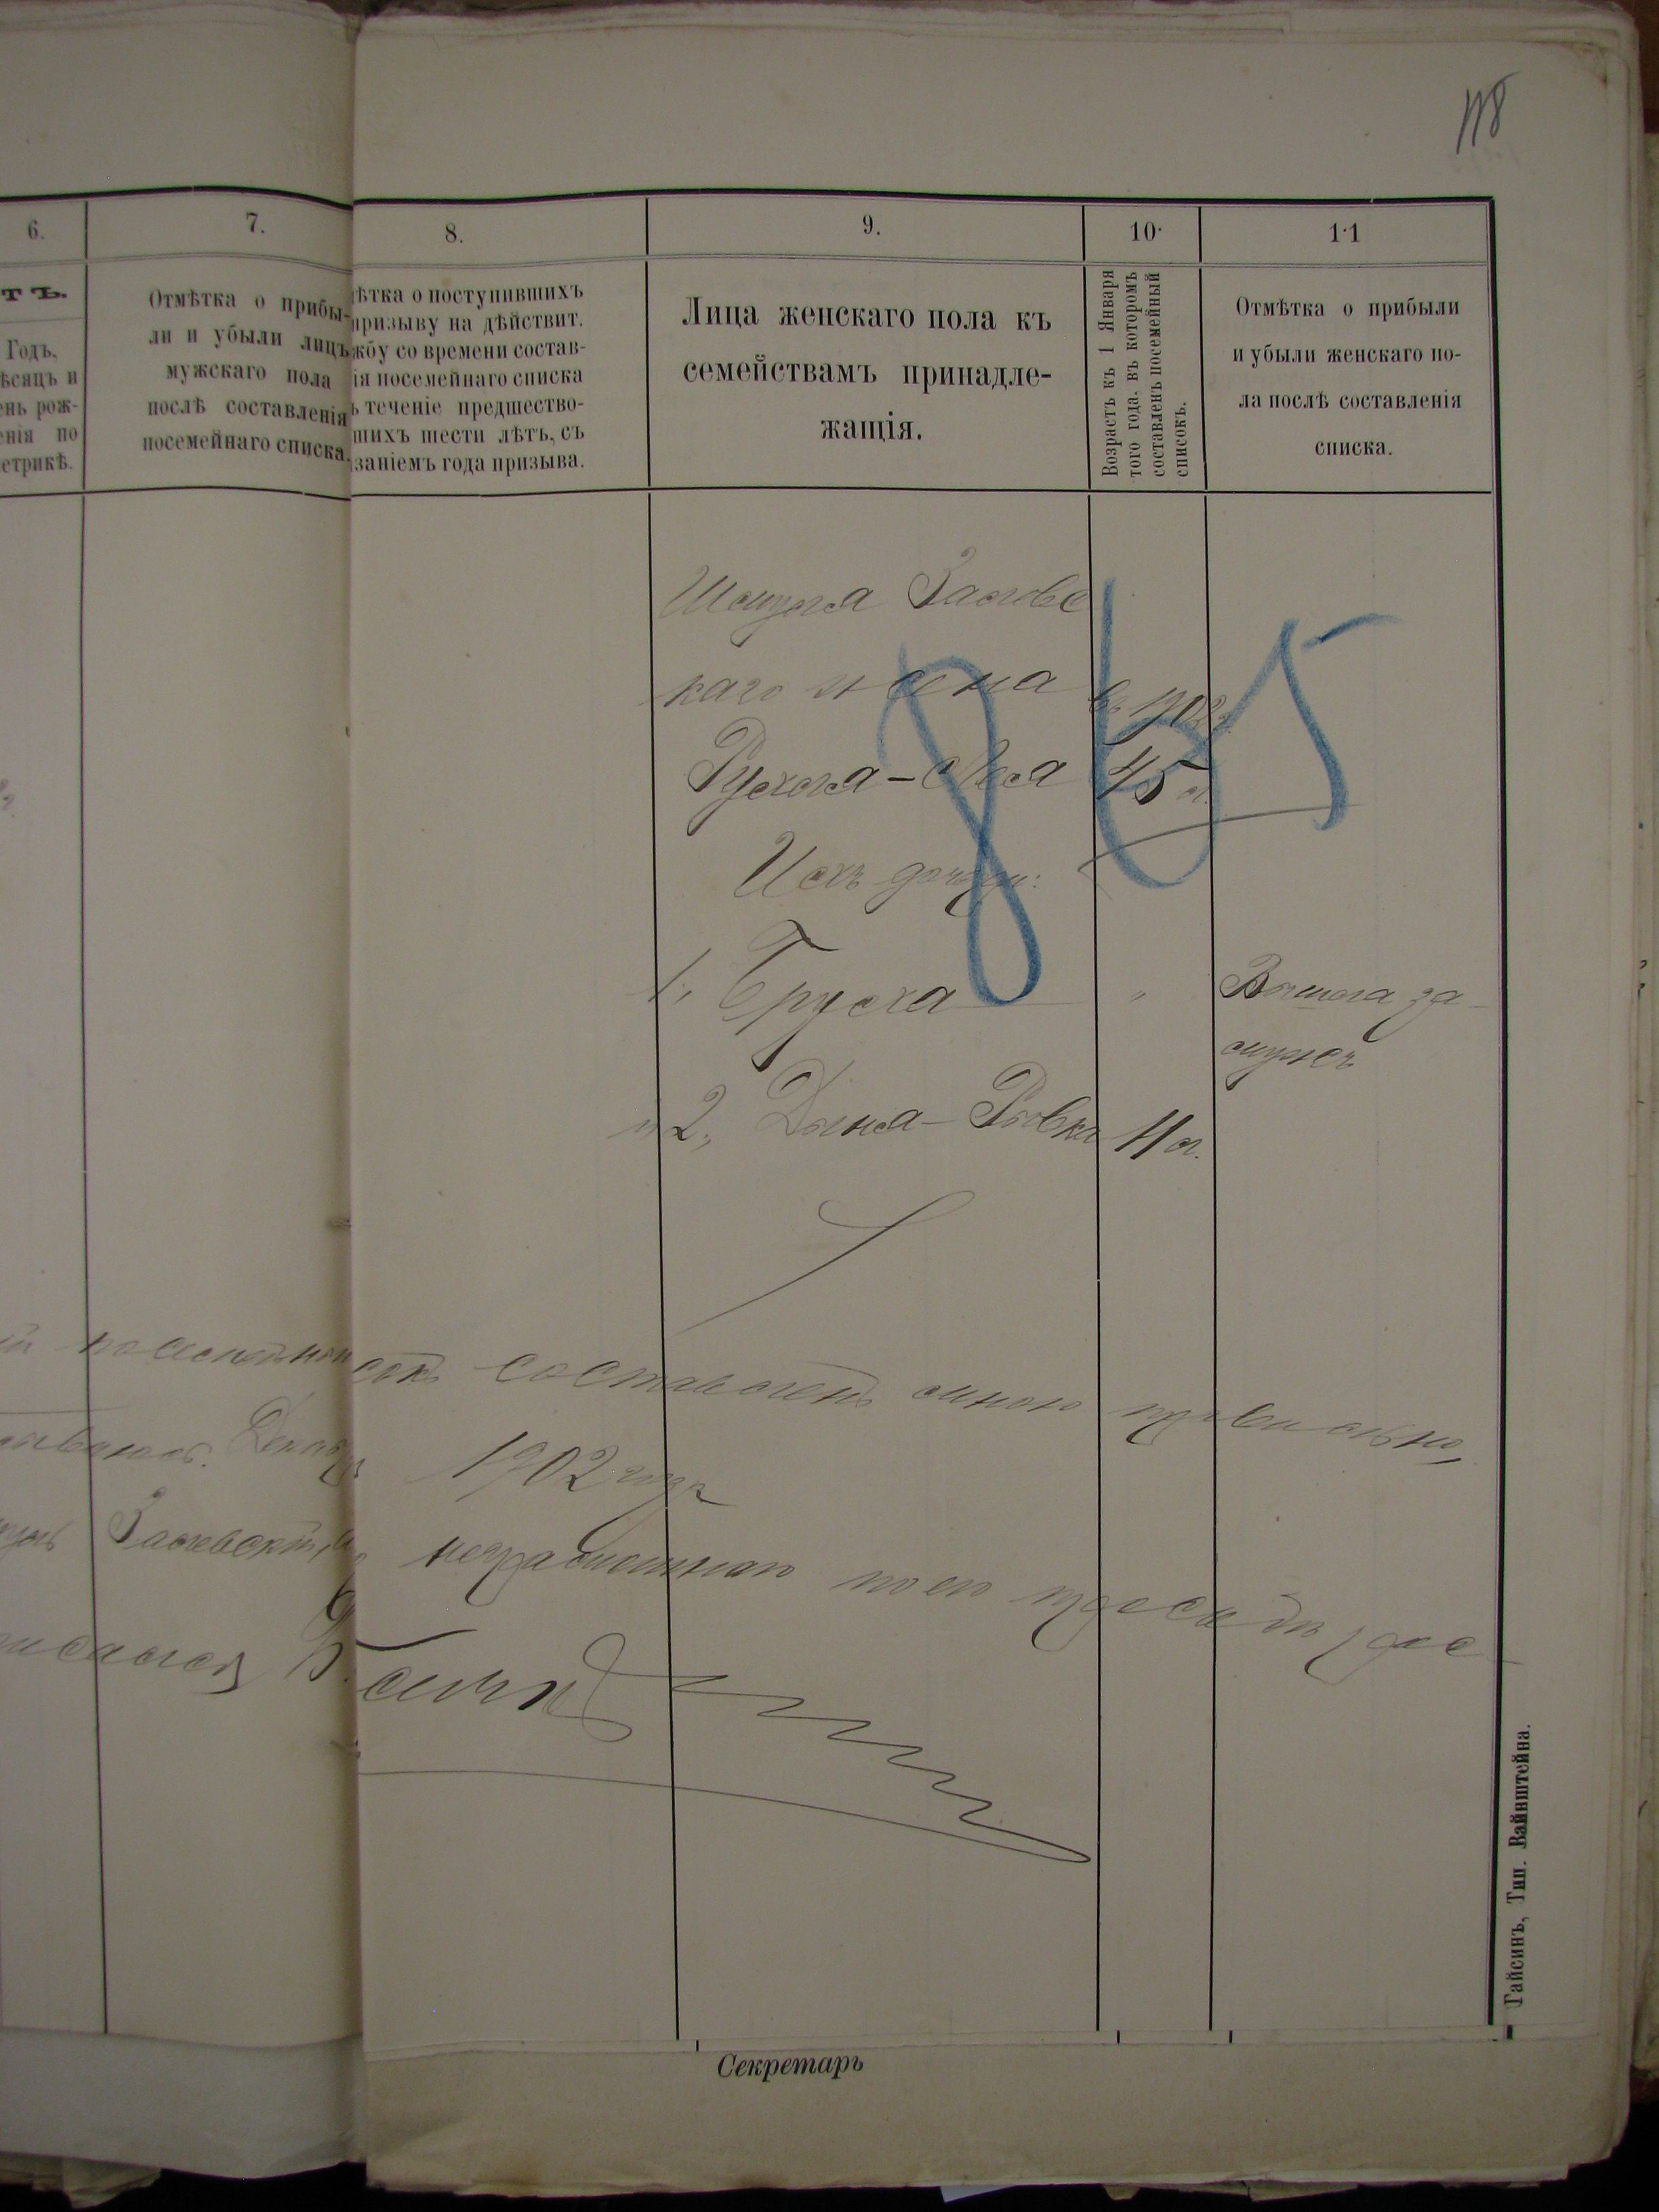 118
6.
7.
8.
9.
10.
11
тъ.
Годъ,
ѣсяцъ и
ень рож-
енія по
етрикѣ.
Отмѣтка о прибы-
ли и убыли лицъ
мужскаго пола
послѣ составленія
посемейнаго списка.
ѣтка о поступившихъ
призыву на дѣйствит.
жбу со времени состав-
ія посемейнаго списка
ъ теченіе предшество-
шихъ шести лѣтъ, съ
заніемъ года призыва.
Лица женскаго пола къ
семействамъ принадле-
жащія.
Возрастъ къ 1 Января
того года, въ которомъ
составленъ посемейный
списокъ.
Отмѣтка о прибыли
и убыли женскаго по-
ла послѣ составленія
списка.
Шмуля Залевс
каго жена въ 1902 г.
Рухля-Лея 45 л.
Ихъ дочери:
1, Бруха " Вышла за
мужъ
и 2, Дына-Ривка 11 л.
865
й посемейный
сокъ составленъ мною правильно,
Декабря
1902 года
Залевскій, а
неграмотнаго по его просьбѣ, рос
писался
Секретарь
Гайсинъ, Тип. Вайнштейна.